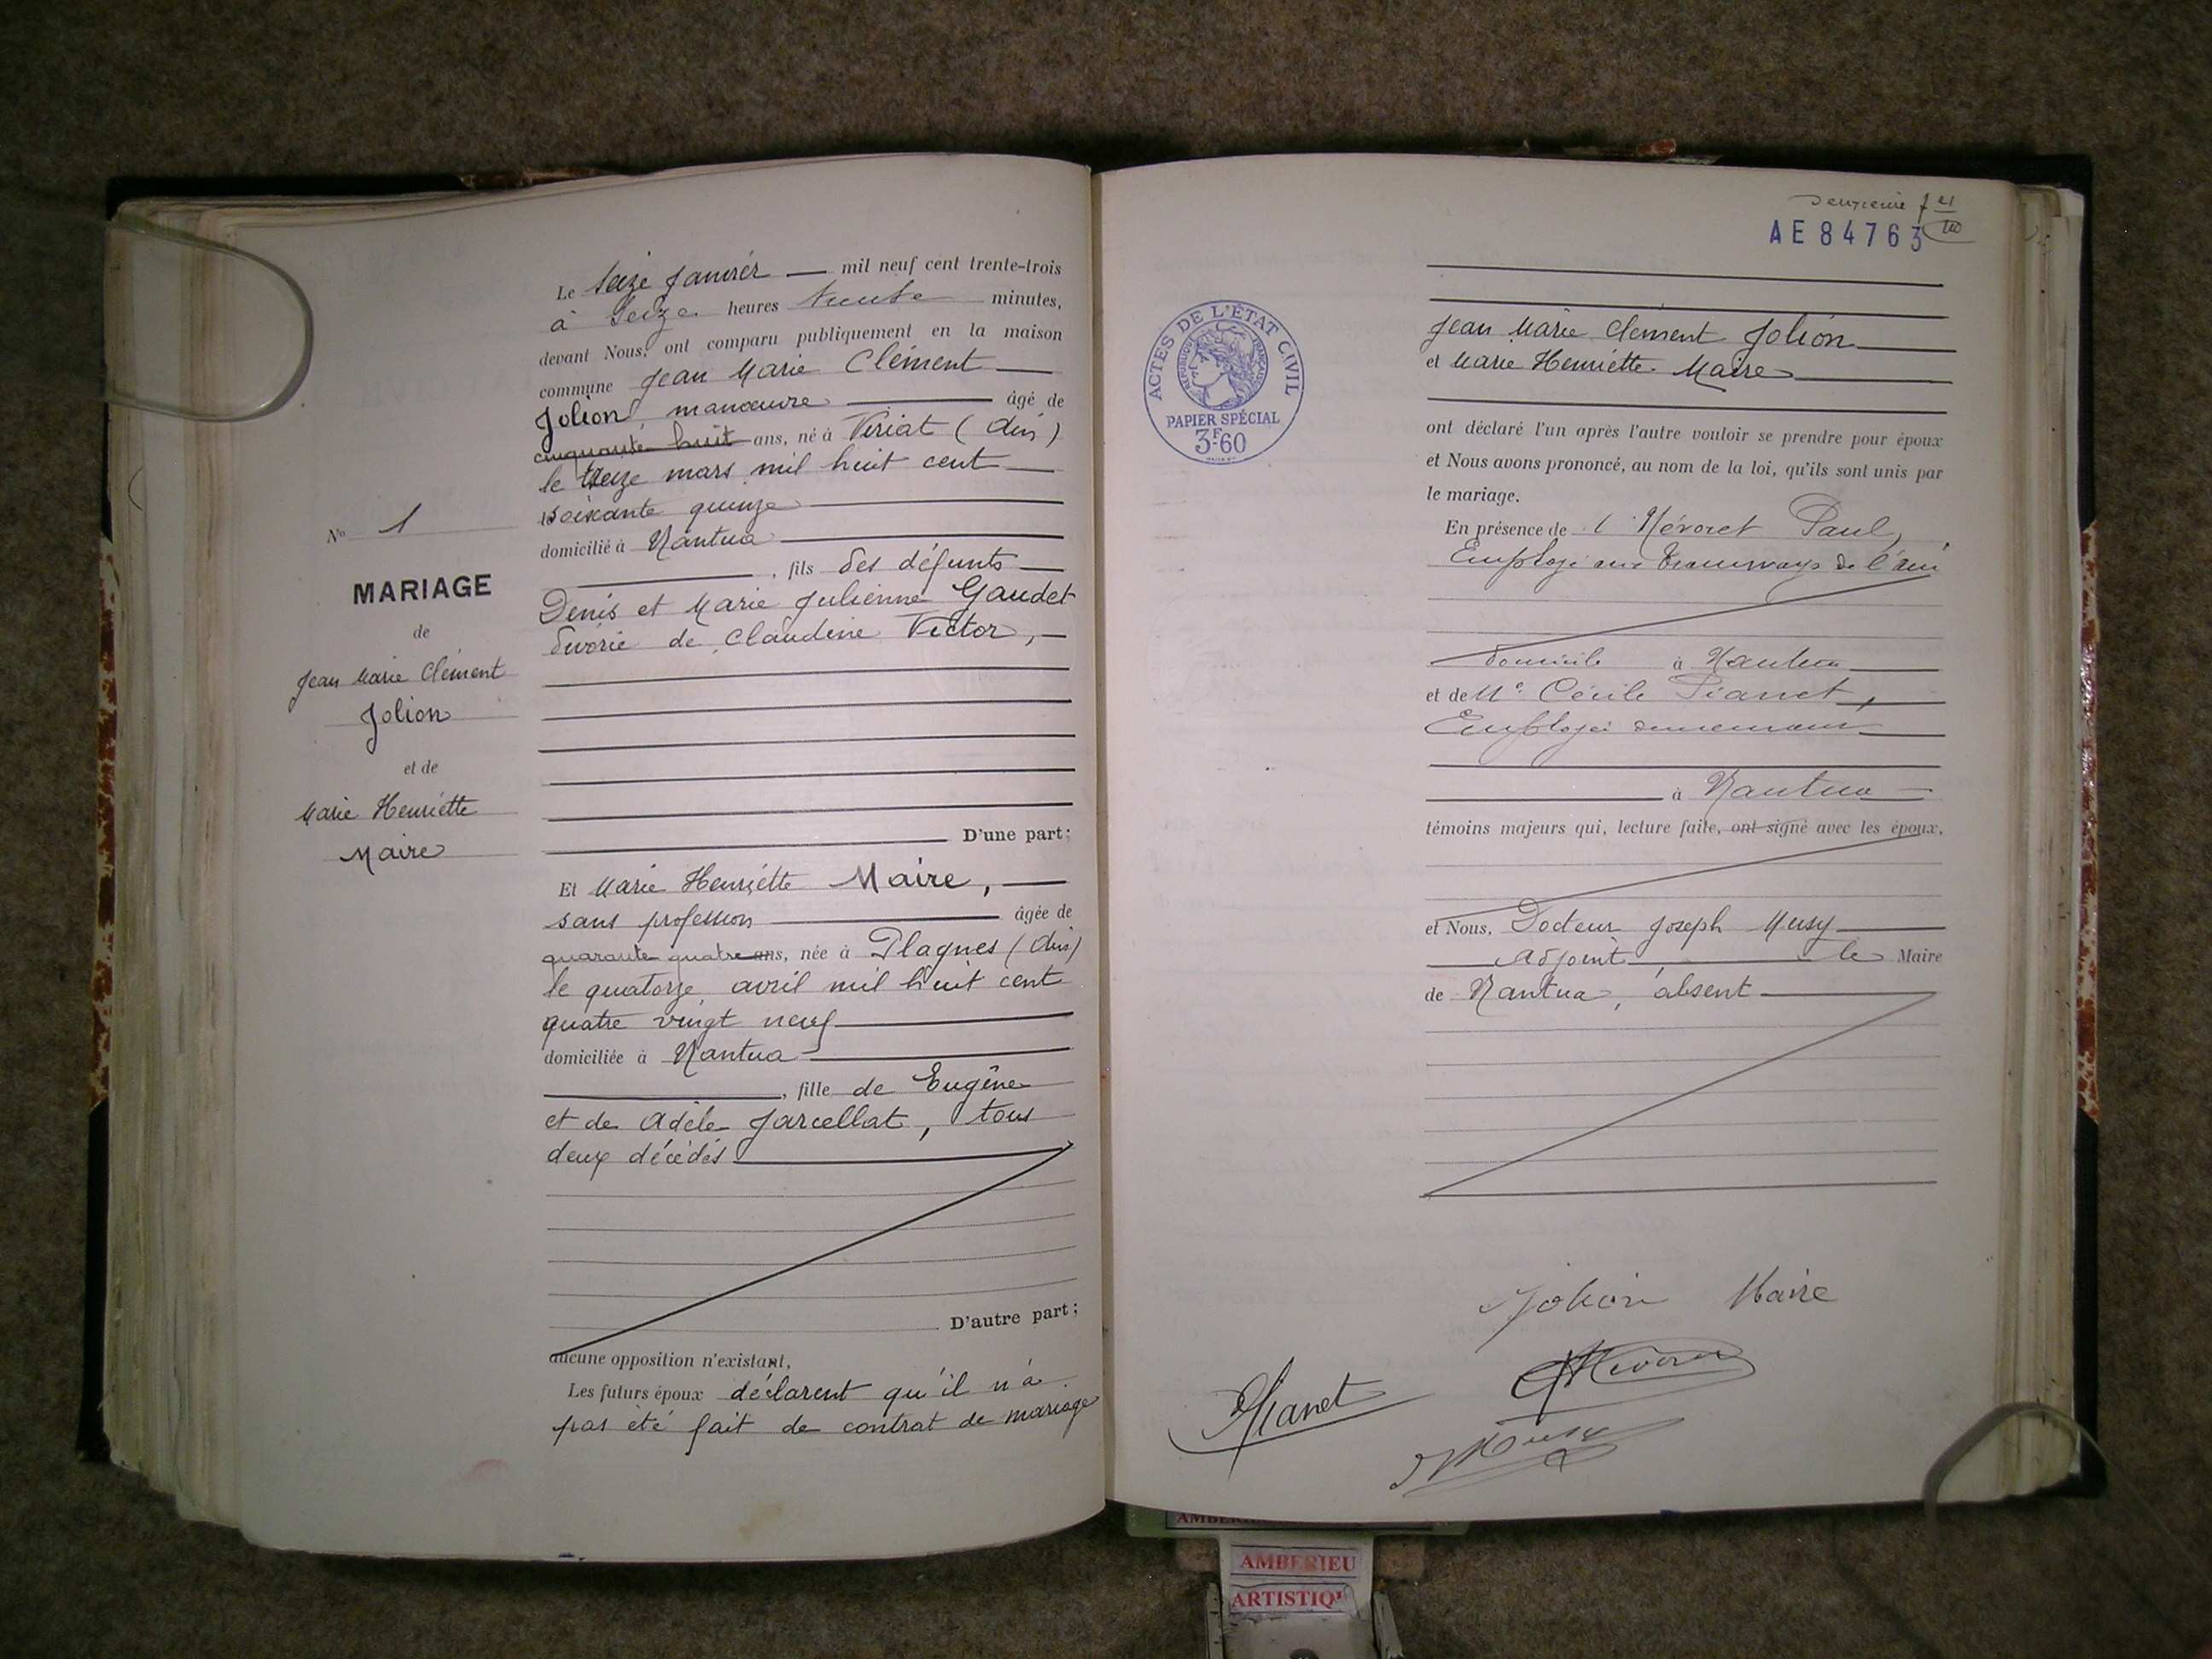 Le seize Janvier mil neuf cent trente-trois
à Seize heures trente minutes,
devant Nous, ont comparu publiquement en la maison
commune Jean Marie Clément
Jolion manœuvre âgé de
cinquante huit ans, né à Viriat (Ain)
le treize mars mil huit cent
soixante quinze
domicilié à Nantua
, fils des défunts
Denis et Marie Julienne Gaudet
divorcé de Claudine Victor,
D'une part;
No 1
MARIAGE
de
Jean Marie Clément
Jolion
et de
Marie Henriette
Maire
Et Marie Henriette Maire,
sans profession âgée de
quarante quatre ans, née à Plagnes (Ain)
le quatorze avril mil huit cent
quatre vingt neuf
domiciliée à Nantua
, fille de Eugène
et de Adèle Jarcellat, tous
deux décédés
D'autre part;
aucune opposition n'existant,
Les futurs époux déclarent qu'il n'a
pas été fait de contrat de mariage
Deuxième
AE 84763
ACTES DE L'ÉTAT CIVIL
RÉPUBLIQUE FRANÇAISE
PAPIER SPÉCIAL
3F60
Jean Marie Clément Jolion
et Marie Henriette Maire
ont déclaré l'un après l'autre vouloir se prendre pour époux
et Nous avons prononcé, au nom de la loi, qu'ils sont unis par
le mariage.
En présence de Névoret Paul,
Employé aux tramways de l'Ain
domicilié à Nantua
et de Me Cécile Pianet,
Employée demeurant
à Nantua
témoins majeurs qui, lecture faite, ont signé avec les époux,
et Nous, Docteur Joseph Musy
Adjoint le Maire
de Nantua, absent
Jolion Maire
Névoret
Pianet
Musy
AMBERIEU
ARTISTIQU